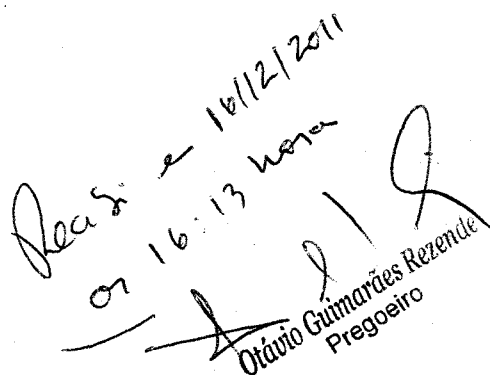 Recebi em 16/12/2011
as 16:13 horas
Otávio Guimarães Rezende
Pregoeiro